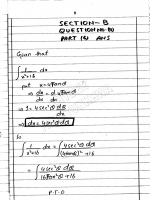 SECTION-B
QUESTION NO.
PART (i) ANS
Given that
∫ 1/(x²+16) dx
put x=4Tanθ
dx/dx = d 4Tanθ/dx
⇒ 1 = 4sec²θ dθ/dx
⇒ dx = 4sec²θ dθ
So
∫ dx/(x²+16) = ∫ 4sec²θ dθ/((4tanθ)²+16)
= ∫ 4sec²θ dθ/(16Tan²θ+16)
P.T.O